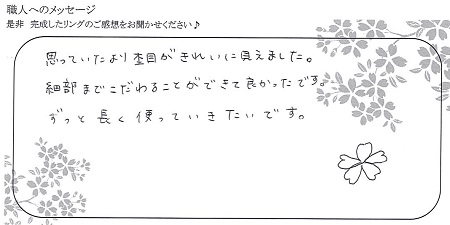 職人へのメッセージ
是非 完成したリングのご感想をお聞かせください♪
思っていたより杢目がきれいに見えました。
細部までこだわることができて良かったです。
ずっと長く使っていきたいです。